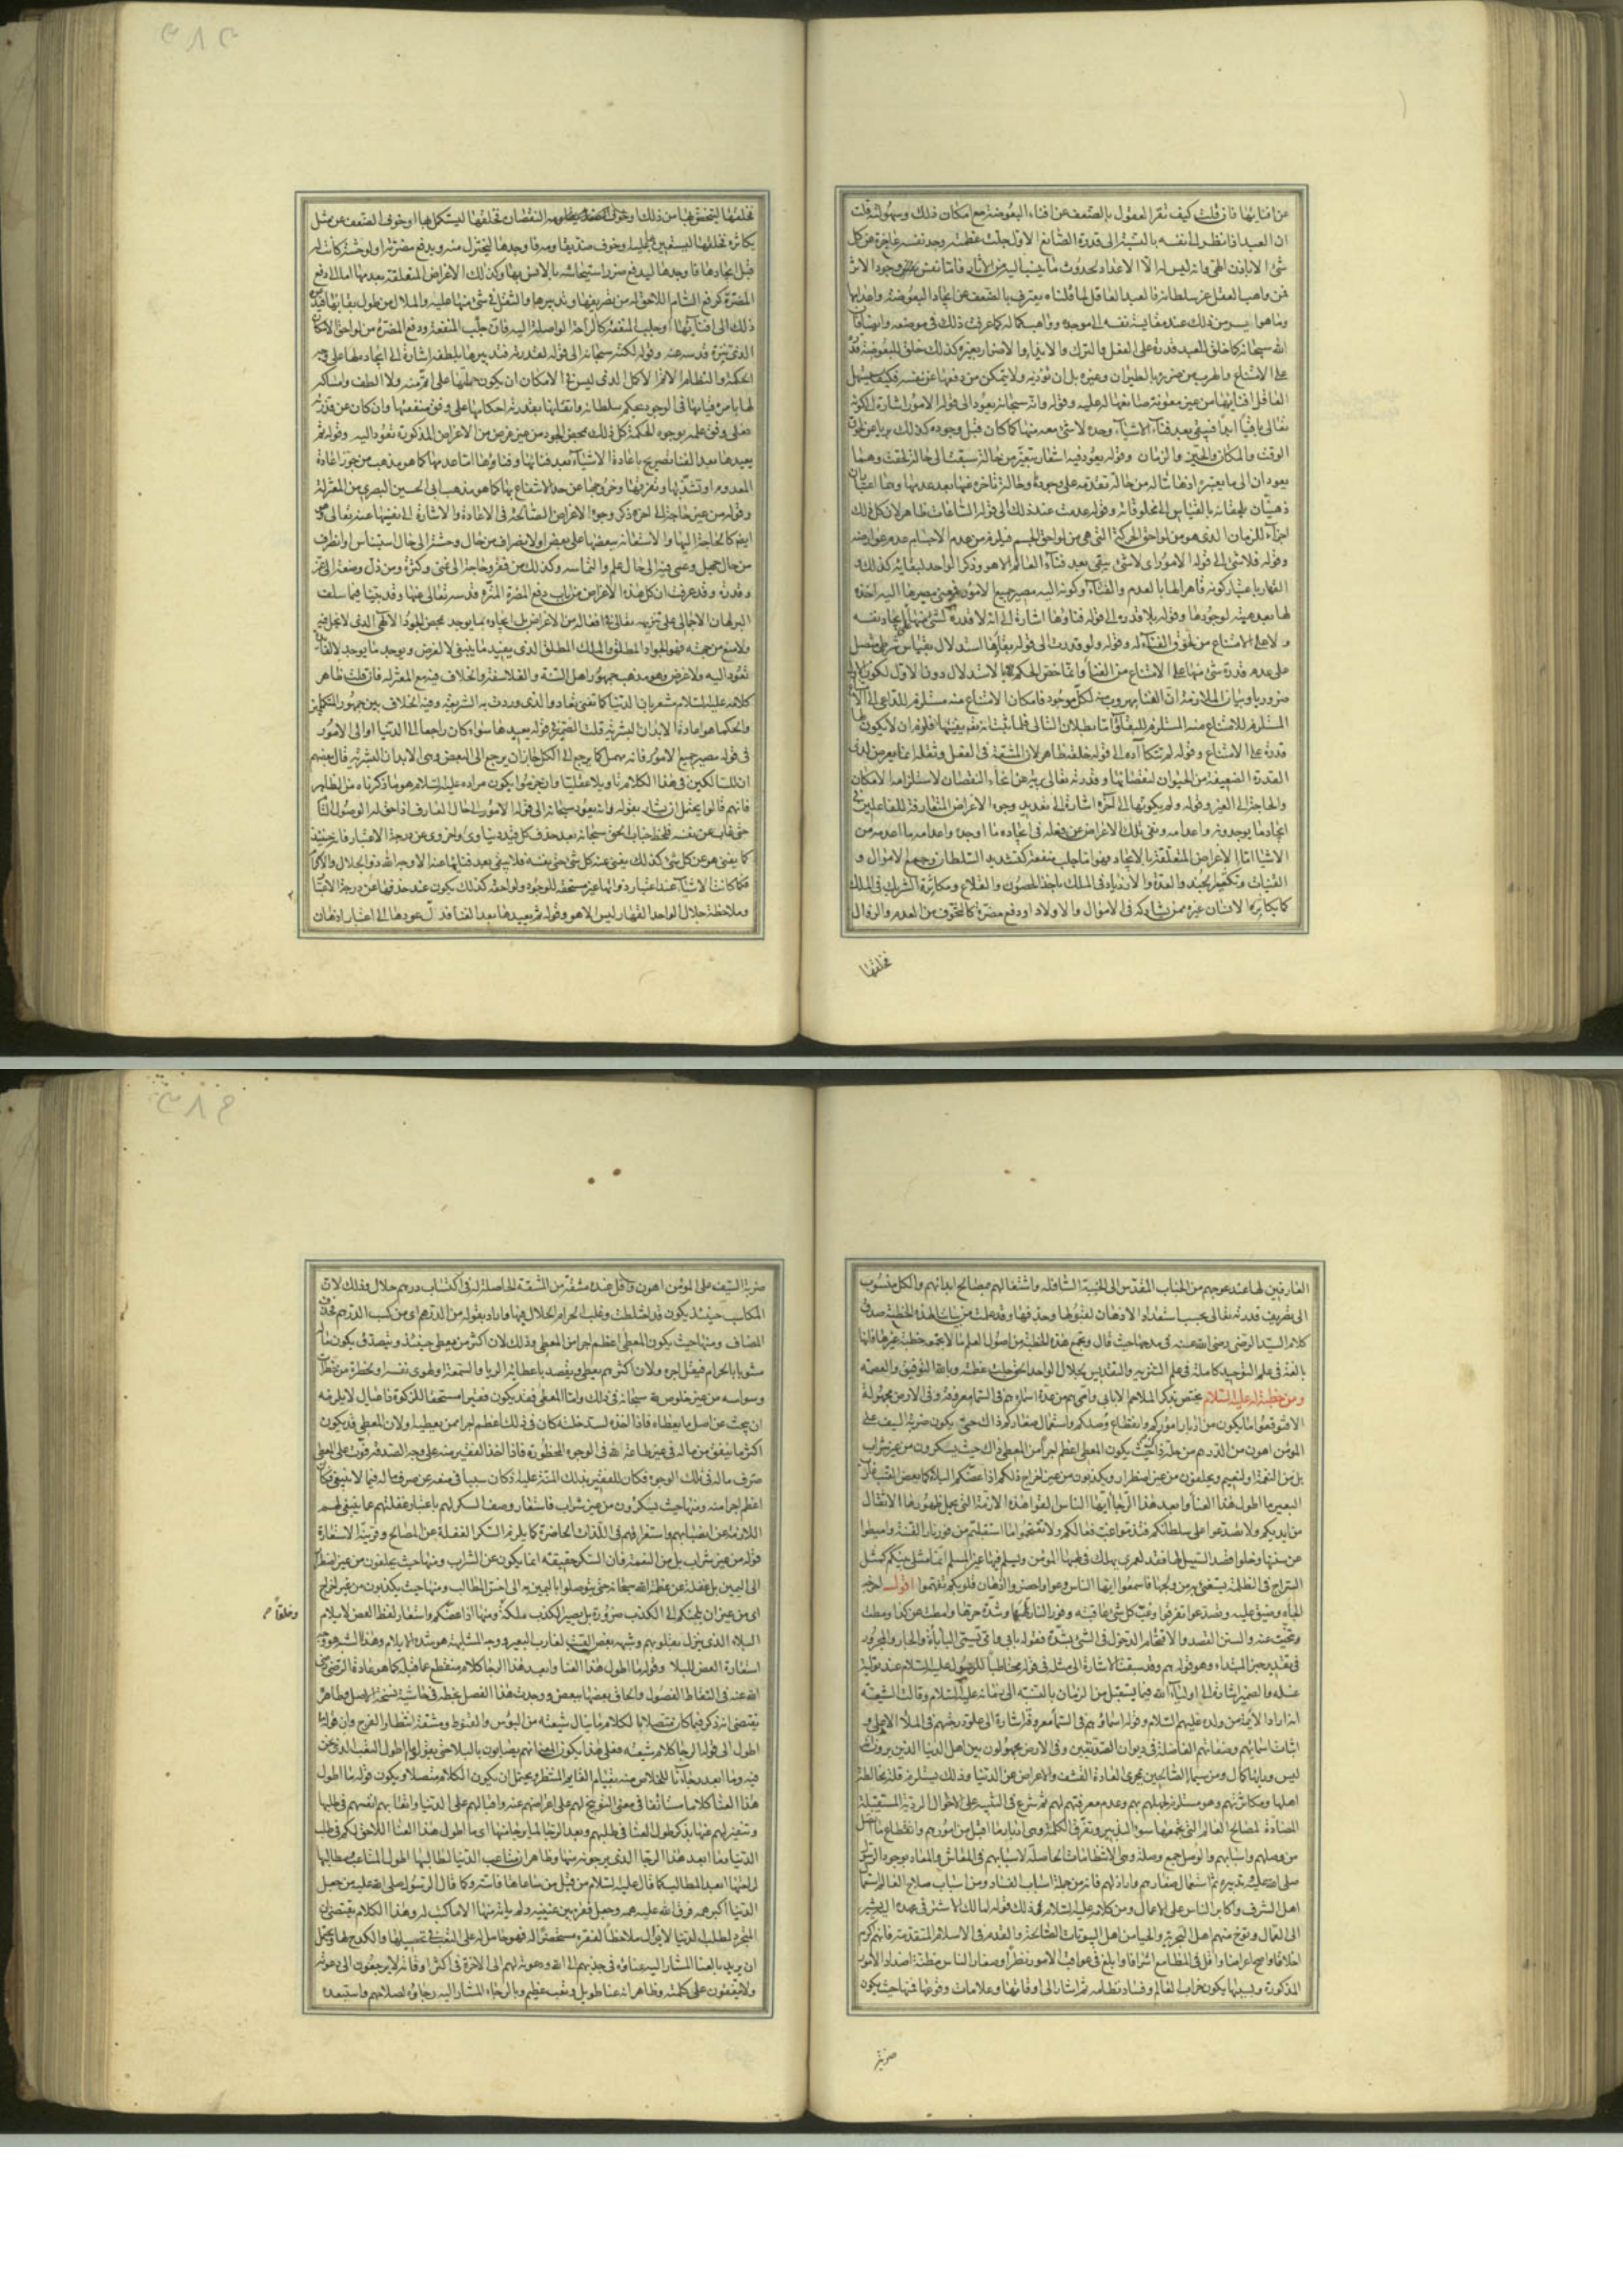 عن افنائها فان قلت كيف تقر العقول بالضعف عن افناء البعوضة مع امكان ذلك وسهولته قلت
ان العبد اذا نظر الى نفسه بالنسبة الى قدرة الصانع الاول جلت عظمته وجد نفسه عاجزة عن كل
شىء الا باذن الهى وانه ليس له الا الاعداد لحدوث ما ينسب اليه من الاثار فاما نفس وجود الاثر
فمن واهب العقل عز سلطانه فالعبد العاقل لما قلناه يعترف بالضعف عن ايجاد البعوضة واعدامها
وما هو ايسر من ذلك عند مقايسة نفسه الى موجده وواهب كماله كما عرفت ذلك فى موضعه وايضا فان
الله سبحانه كما خلق للعبد قدرة على الفعل والترك والايذاء والاضرار بغيره كذلك خلق للبعوضة قدرة
على الامتناع والهرب من ضرره بالطيران وغيره بل ان تؤذيه ولا يتمكن من دفعها عن نفسه فكيف يستسهل
العاقل افناءها من غير معونة صانعها له عليه وقوله وانه سبحانه يعود الى قوله الامور اشارة الى كونه
تعالى باقيا ابدا فيبقى بعد فناء الاشياء وحده لا شىء معه منها كما كان قبل وجوده كذلك بريا عن لحوق
الوقت والمكان والحين والزمان وقوله يعود فيه اشعار بتغير من حالة سبقت الى حالة لحقت وهما
يعودان الى ما يعتبره اذهاننا له من حالة تقدمه على وجودها وحالة تاخره عنها بعد عدمها وهما اعتباران
ذهنيان يلحقانه بالقياس الى مخلوقاته وقوله عدمت عند ذلك الى قوله الساعات ظاهر لان كل ذلك
اجزاء للزمان الذى هو من لواحق الحركة التى هى من لواحق الجسم فيلزم من عدم الاجسام عدم عوارضه
وقوله فلا شىء الى قوله الامور اى لا شىء يبقى بعد فناء العالم الا هو وذكر الواحد لبقائه كذلك
القهار باعتبار كونه قاهرا لها بالعدم والفناء وكونه اليه مصير جميع الامور فمعنى مصيرها اليه اخذه
لها بعد هبته لوجودها وقوله بلا قدرة الى قوله فناؤها اشارة الى انه لا قدرة لشىء منها على ايجاد نفسه
ولا على الامتناع من لحوق الفناء له وقوله ولو قدرت الى قوله بقاؤها استدلال بقياس شرطى متصل
على عدم قدرة شىء منها على الامتناع من الفناء وانما خص الحكم بالاستدلال دون الاول لكون الاول
ضروريا وبيان الملازمة ان الفنا مهروب منه لكل موجود فامكان الامتناع منه مستلزم للداعى الى الامتناع
المستلزم للامتناع منه المستلزم للبقاء واما بطلان التالى فلما ثبت انه تعالى يفنيها فلزم ان لا يكون لها
قدرة على الامتناع وقوله لم يتكاده الى قوله خلقه ظاهر لان المشقة فى الفعل وثقله انما يعرض لذى
القدرة الضعيفة من الحيوان لنقصانها وقدرته تعالى بريئة عن انحاء النقصان لاستلزامه الامكان
والحاجة الى الغير وقوله ولم يكونها الى آخره اشارة الى تعديد وجوه الاغراض المتعارفة للفاعلين فى
ايجاد ما يوجدونه واعدامه ونفى تلك الاغراض عن فعله فى ايجاده ما اوجده واعدامه ما اعدمه من
الاشيا اما الاغراض المتعلقة بالايجاد فهو اما جلب منفعة كتشديد السلطان وجمع الاموال و
القينات وتكثير الجند والعدة والازدياد فى الملك باخذ الحصون والقلاع ومكاثرة الشريك فى الملك
كما يكاثر الانسان غيره ممن يشاركه فى الاموال والاولاد او دفع مضرة كالتخوف من العدم والزوال
فخلقها
فخلقها ليتحصن بها من ذلك او خوف النقصان فخلقها ليستكمل بها او خوف الضعف عن مثل
يكاثره فخلقها ليستعين بها عليه او خوف ضد يقاومه فاوجدها ليحترز منه ويدفع مضرته او لوحشة كانت له
قبل ايجادها فاوجدها ليدفع ضرر استيحاشه بالانس بها وكذلك الاغراض المتعلقة بعدمها اما الى دفع
المضرة كرفع السام اللاحق له من تصريفها وتدبيرها والثقل فى شىء منها عليه والملال من طول بقائها فدعاه
ذلك الى افنائها او جلب المنفعة كالراحة الواصلة اليه فان جلب المنفعة ودفع المضرة من لواحق الامكان
الذى تنزه قدسه عنه وقوله لكنه سبحانه الى قوله لقدرته فتدبيرها بلطفه اشارة الى ايجاده لها على وجه
الحكمة والنظام الاتم الاكمل الذى ليس فى الامكان ان يكون جملتها على اتم منه ولا الطف وامساكه
لها بامره قيامها فى الوجود بحكم سلطانه واتقانها بقدرته احكامها على وفق منفعتها وان كان عن قدرته
فعلى وفق علمه بوجوه الحكمة كل ذلك بمحض الجود من غير غرض من الاغراض المذكورة تعود اليه وقوله ثم
يعيدها بعد الفناء تصريح باعادة الاشياء بعد فنائها وفناؤها اما عدمها كما هو مذهب من جوز اعادة
المعدوم او تشذبها وتفرقها وخروجها عن حد الانتفاع بها كما هو مذهب ابى الحسين البصرى من المعتزلة
وقوله من غير حاجة الى اخره ذكر وجوه الاغراض الصالحة فى الاعادة والاشارة الى نفيها عنه تعالى وهى
ايضا كالحاجة اليها والاستعانة ببعضها على بعض او لانصراف من حال وحشة الى حال استيناس او انصراف
من حال جهل وعمى فيه الى حال علم والتماسه وكذلك من فقر وحاجة الى غنى وكثرة ومن ذل وضعة الى عز
وقدرة وقد عرفت ان كل هذه الاغراض من باب دفع المضرة المنزه قدسه تعالى عنها وقد بينا فيما سلف
البرهان الاجمالى على تنزيهه تعالى فى افعاله من الاغراض بل ايجاده ما يوجد بمحض الجود الالهى الذى لا بخل فيه
ولا منع من جهته فهو الجواد المطلق والملك المطلق الذى يفيد ما ينبغى لا لغرض ويوجد ما يوجد لا لفائدة
تعود اليه ولا غرض وهو مذهب جمهور اهل السنة والفلاسفة والخلاف فيه مع المعتزلة فان قلت ظاهر
كلامه عليه السلام مشعر بان الدنيا كما تفنى تعاد والذى وردت به الشريعة وفيه الخلاف بين جمهور المتكلمين
والحكما هو اعادة الابدان البشرية قلت الضمير فى قوله يعيدها سواء كان راجعا الى الدنيا او الى الامور
فى قوله مصير جميع الامور فانه مهمل كما يرجع الى الكل جاز ان يرجع الى البعض وهى الابدان البشرية قال بعضهم
ان للسالكين فى هذا الكلام تاويلا عقليا وان جزموا بكون مراده عليه السلام هو ما ذكرناه من الظاهر
فانهم قالوا يحتمل ان يشار بقوله وانه يعود سبحانه الى قوله الامور الى حال العارف اذا حق له الوصول التام
حتى غاب عن نفسه فلحظ جناب الحق سبحانه بعد حذف كل قيد دنياوى واخروى عن درجة الاعتبار فانه حينئذ
كما يفنى هو عن كل شىء كذلك يفنى عنه كل شىء حتى نفسه فلا يبقى بعد فنائها عنه الا وجه الله ذو الجلال والاكرام
فكما كانت الاشياء عند اعتبار ذواتها غير مستحقة للوجود ولواحقه كذلك يكون عند حذفها عن درجة الاعتبار
وملاحظة جلال الواحد القهار ليس الا هو وقوله ثم يعيدها بعد الفناء فدل عودها الى اعتبار اذهان
٣٨٣
العارفين لها عند عودهم من الجناب المقدس الى الجنبة السافلة واشتغالهم بمصالح ابدانهم والكل منسوب
الى تصريف قدرته تعالى بحسب استعداد الاذهان لقبولها وحذفها وقد علمت من بيان هذه الخطبة صدق
كلام السيد الرضى رضى الله عنه فى مدحها حيث قال وتجمع هذه الخطبة من اصول العلم ما لا تجمعه خطبة غيرها فانها
بالغة فى علم التوحيد كاملة فى علم التنزيه والتقديس لجلال الواحد الحق جلت عظمته وبالله التوفيق والعصمة
ومن خطبة له عليه السلام يختص بذكر الملاحم الا بابى وامى هم من عدة اسماؤهم فى السماء معروفة وفى الارض مجهولة
الا فتوقعوا ما يكون من ادبار اموركم وانقطاع وصلكم واستعمال صغاركم ذاك حيث يكون ضربة السيف على
المؤمن اهون من الدرهم من حله ذاك حيث يكون المعطى اعظم اجرا من المعطى ذاك حيث تسكرون من غير شراب
بل من النعمة والنعيم وتحلفون من غير اضطرار وتكذبون من غير احراج ذلك اذا عضكم البلاء كما يعض القتب غارب
البعير ما اطول هذا العناء وابعد هذا الرجاء ايها الناس القوا هذه الازمة التى تحمل ظهورها الاثقال
من ايديكم ولا تصدعوا على سلطانكم فتذموا غب فعالكم ولا تقتحموا ما استقبلتم من فور نار الفتنة واميطوا
عن سننها وخلوا قصد السبيل لها فقد لعمرى يهلك فى لهبها المؤمن ويسلم فيها غير المسلم انما مثلى بينكم كمثل
السراج فى الظلمة يستضىء به من ولجها فاسمعوا ايها الناس وعوا واحضروا اذان قلوبكم تفهموا اقول احرجه
الجأه وضيق عليه وتصدعوا تفرقوا وغب كل شىء عاقبته وفور النار تلهبها وشدة حرها وامطت عن كذا ومطت
وتنحيت عنه والسنن القصد والاقتحام الدخول فى الشىء بشدة فقوله بابى وامى تسمى البابأة والجار والمجرور
فى تقدير خبر المبتداء وهو قوله هم وقد سبقت الاشارة الى مثله فى قوله مخاطبا للرسول عليه السلام عند تولية
غسله والضمير اشارة الى اولياء الله فيما يستقبل من الزمان بالنسبة الى زمانه عليه السلام وقالت الشيعة
انه اراد الائمة من ولده عليهم السلام وقوله اسماؤهم فى السماء معروفة اشارة الى علو درجتهم فى الملاء الاعلى و
اثبات اسمائهم وصفاتهم الفاضلة فى ديوان الصديقين وفى الارض مجهولون بين اهل الدنيا الذين يرون انه
ليس وراءها كمال ومن سيما الصالحين مجرى العادة القشف والاعراض عن الدنيا وذلك يستلزم قلة مخالطة
اهلها ومكاثرتهم وهو مستلزم لجهلهم بهم وعدم معرفتهم لهم ثم شرع فى التنبيه على الاحوال الردية المستقبلة
المضادة لمصالح العالم التى يجمعها سوء التدبير وتفرق الكلمة وهى ادبار ما اقبل من امورهم وانقطاع ما اتصل
من وصلهم واسبابهم والوصل جمع وصلة وهى الانتظامات الحاصلة لاسبابهم فى المعاش والمعاد بوجود الرسول
صلى الله عليه وتدبيره ثم استعمال صغارهم واراذلهم فانه من جملة اسباب الفساد ومن اسباب صلاح العالم استعمال
اهل الشرف واكابر الناس على الاعمال ومن كلامه عليه السلام فى ذلك قوله لمالك الاشتر فى عهده اليه يشير
الى العمال وتوخ منهم اهل التجربة والحياء من اهل البيوتات الصالحة والقدم فى الاسلام المتقدمة فانهم اكرم
اخلاقا واصح اعراضا واقل فى المطامع اشرافا وابلغ فى عواقب الامور نظرا وصغار الناس مظنة اضداد الامور
المذكورة وبسببها يكون خراب العالم وفساد نظامه ثم اشار الى اوقاتها وعلامات وقوعها فمنها حيث يكون
ضربة
ضربة السيف على المؤمن اهون واقل عنده مشقة من المشقة الحاصلة له فى اكتساب درهم حلال وذلك لان
المكاسب حينئذ يكون قد اختلطت وغلب الحرام الحلال فيها واراد بقوله من الدرهم اى من كسب الدرهم فحذف
المضاف ومنها حيث يكون المعطى اعظم اجرا من المعطى وذلك لان اكثر من يعطى حينئذ ويتصدق يكون ماله
مشوبا بالحرام فيقل اجره ولان اكثرهم يعطى ويقصد باعطائه الريا والسمعة او لهوى نفسه او خطرة من خطرات
وسواسه من غير خلوص لله سبحانه فى ذلك واما المعطى فقد يكون فقيرا مستحقا للزكوة ذا عيال لا يلزمه
ان يبحث عن اصل ما يعطاه فاذا اخذه لسد خلته كان فى ذلك اعظم اجرا ممن يعطيه ولان المعطى قد يكون
اكثر ما ينفق من ماله فى غير طاعة الله فى الوجوه المحظورة فاذا اخذ الفقير منه على وجه الصدقة فوت على المعطى
صرف ماله فى تلك الوجوه فكان للفقير بذلك المنة عليه اذ كان سببا فى منعه عن صرف ماله فيما لا ينبغى فكان
اعظم اجرا منه ومنها حيث يسكرون من غير شراب فاستعار وصف السكر لهم باعتبار غفلتهم عما ينبغى لهم
اللازمة عن انصبابهم واستغراقهم فى اللذات الحاضرة كما يلزم السكر الغفلة عن المصالح وقرينة الاستعارة
قوله من غير شراب بل من النعمة فان السكر حقيقته انما يكون عن الشراب ومنها حيث يحلفون من غير اضطرار
الى اليمين بل غفلة عن عظمة الله سبحانه حتى يتوصلوا باليمين به الى اخس المطالب ومنها حيث يكذبون من غير احراج
اى من غير ان يلجئكم الى الكذب ضرورة بل يصير الكذب ملكة ومنها اذا عضكم واستعار لفظ العض لايلام
وخلقا ص
البلاء الذى ينزل بقلوبهم وشبهه بعض القتب لغارب البعير ووجه المشابهة هو شدة الايلام وهذا الشبه هو وجه
استعارة العض للبلا وقوله ما اطول هذا العنا وابعد هذا الرجا كلام منقطع عما قبله كما هو عادة الرضى رضى
الله عنه فى التقاط الفصول والحاق بعضها ببعض ووجدت هذا الفصل بخطه فى حاشية نسخة الاصل وظاهره
يقتضى انه ذكر فيما كان متصلا بالكلام ما ينال شيعته من البؤس والقنوط ومشقة انتظار الفرج وان قوله ما
اطول الى قوله الرجا كلام شيعته فعلى هذا يكون المعنى انهم يصابون بالبلا حتى يقولوا ما اطول التعب الذى نحن
فيه وما ابعد رجاءنا للخلاص منه بقيام القائم المنتظر ويحتمل ان يكون الكلام متصلا ويكون قوله ما اطول
هذا العنا كلاما مستانفا فى معنى التوبيخ لهم على اعراضهم عنه واقبالهم على الدنيا واتعابهم انفسهم فى طلبها
وتنفير لهم عنها بذكر طول العناء فى طلبهم وبعد الرجاء لما يرجى منها اى ما اطول هذا العنا اللاحق لكم فى طلب
الدنيا وما ابعد هذا الرجا الذى يرجونه منها وظاهر ان متاعب الدنيا لطالبها اطول المتاعب ومطالبها
لراجيها ابعد المطالب كما قال عليه السلام من قبل من ساعاها فاتته وكما قال الرسول صلى الله عليه من جعل
الدنيا اكبر همه فرق الله عليه همه وجعل فقره بين عينيه ولم ياته منها الا ما كتب له وهذا الكلام يقتضى ان
المتجرد لطلب الدنيا لا يزال ملاحظا لفقره مستحضرا له فهو حامل له على التعب فى تحصيلها والكدح لها ويحتمل
ان يريد بالعنا المشار اليه عناؤه فى جذبهم الى الله ودعوته لهم الى الاخرة فى اكثر اوقاته لا يرجعون الى دعوته
ولا يتفقون على كلمته وظاهر انه عنا طويل وتعب عظيم وبالرجاء المشار اليه رجاؤه لصلاحهم واستبعده
٣٨٤